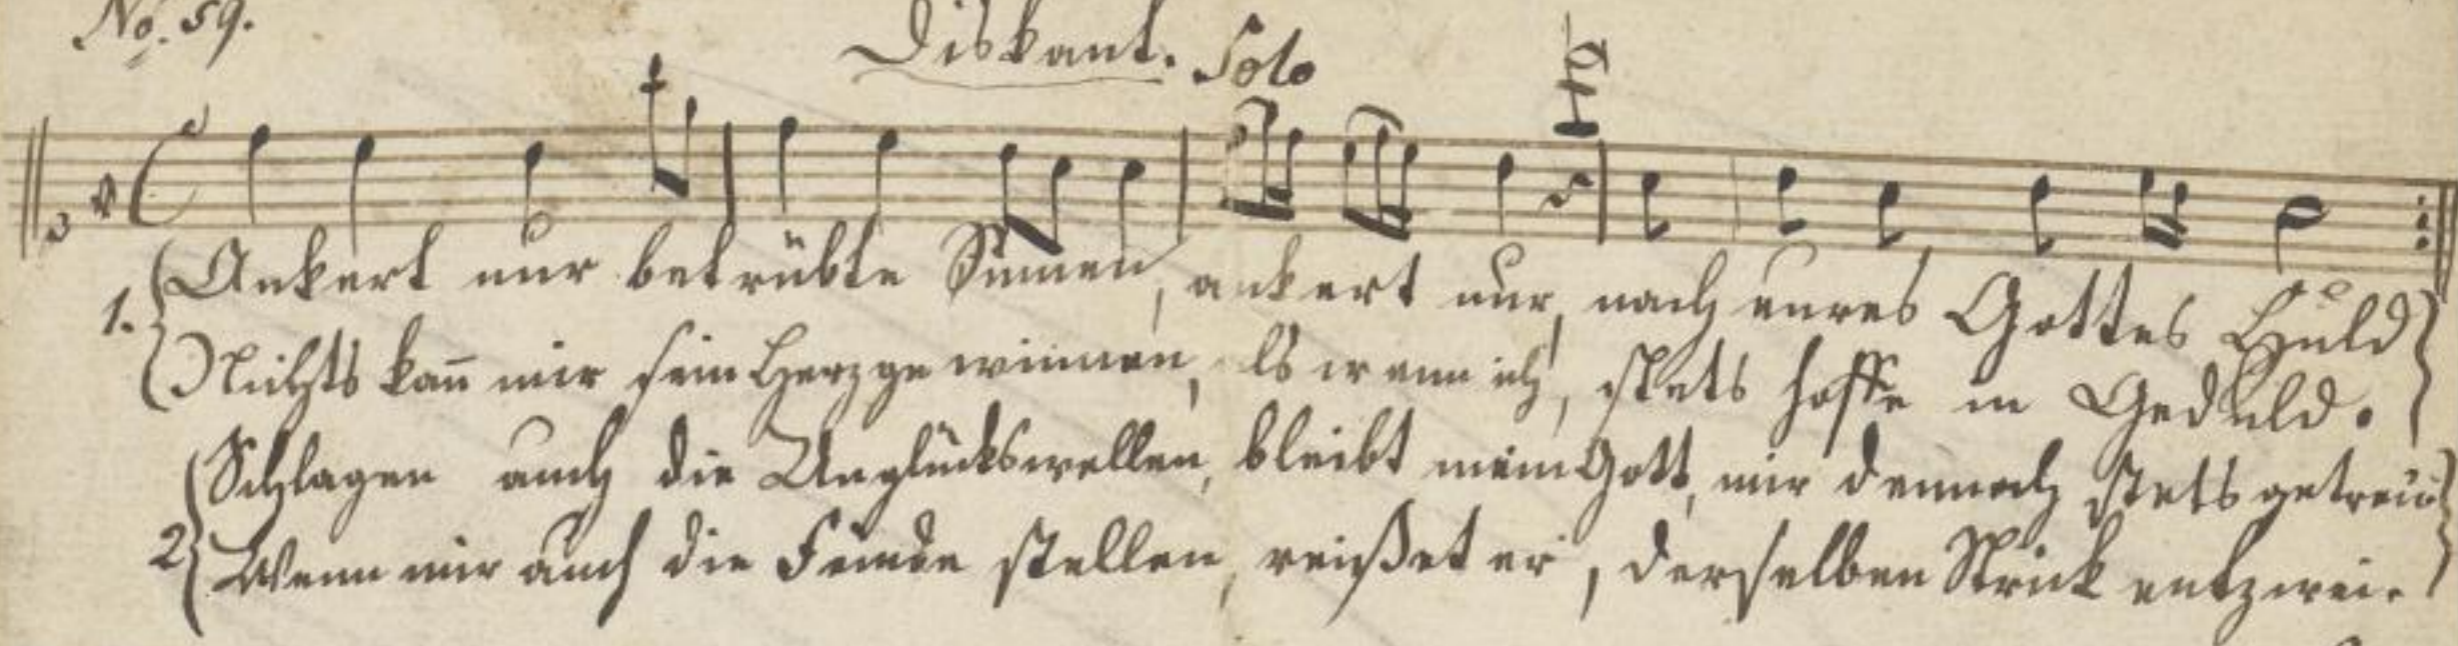 No. 59.
Diskant. Solo
1. Ankert nur betrübte Sinnen, ankert nur, nach eures Gottes Huld
Nichts kann mir sein Herz gewinnen, als wenn ich, stets hoffe in Geduld.
2 Schlagen auch die Unglückswellen, bleibt mein Gott, mir dennoch stets getreu
Wenn mir auch die Feinde stellen, reißet er, derselben Strick entzwei.